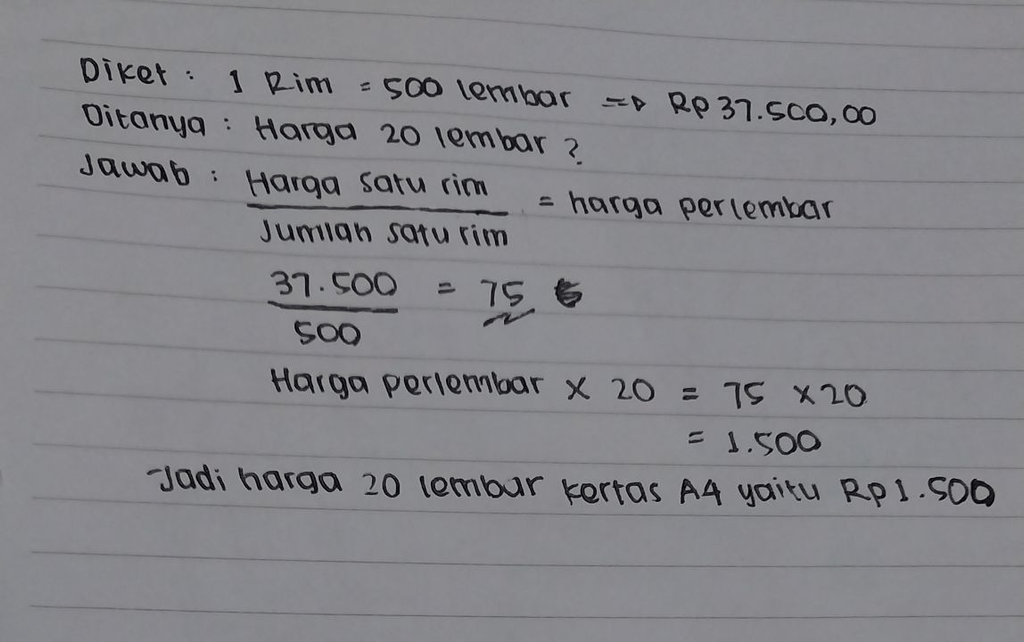 Diket : 1 Rim = 500 lembar => Rp 37.500,00
Ditanya : Harga 20 lembar ?
Jawab : Harga satu rim = harga perlembar
Jumlah satu rim
37.500 = 75
500
Harga perlembar x 20 = 75 x 20
= 1.500
Jadi harga 20 lembar kertas A4 yaitu Rp 1.500